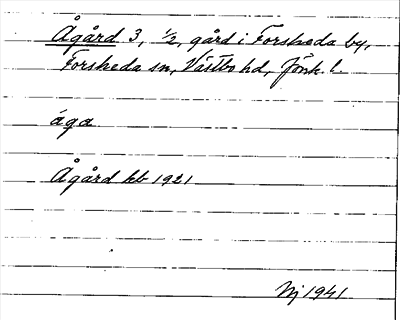 Ågård 3, 1/2, gård i Forsheda by,
Forsheda sn, Västbo hd, Jönk. l.
åga
Ågård kb 1921
Nj 1941